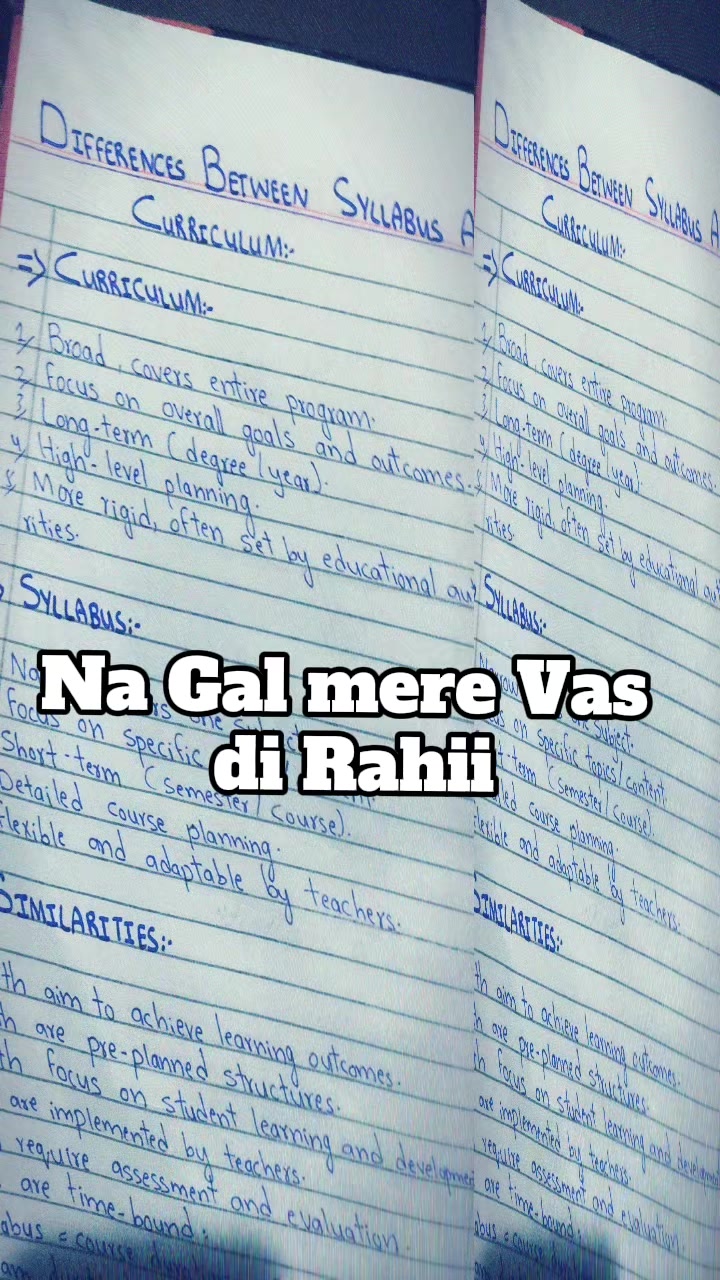 DIFFERENCES BETWEEN SYLLABUS A
CURRICULUM:-
=> CURRICULUM:-
1, Broad, covers entire program.
2, Focus on overall goals and outcomes.
3, Long-term (degree/year).
4, High-level planning.
5, More rigid, often set by educational aut
rities.
SYLLABUS:-
Na Gal mere Vas
di Rahii
Focus on specific
Short-term (semester/course).
Detailed course planning.
Flexible and adaptable by teachers.
SIMILARITIES:-
th aim to achieve learning outcomes.
h are pre-planned structures.
th focus on student learning and developme
are implemented by teachers.
require assessment and evaluation.
are time-bound:
abus = course
DIFFERENCES BETWEEN SYLLABUS A
CURRICULUM:-
=> CURRICULUM:-
1, Broad, covers entire program.
2, Focus on overall goals and outcomes.
3, Long-term (degree/year).
4, High-level planning.
5, More rigid, often set by educational aut
rities.
SYLLABUS:-
subject.
on specific topics/content.
t-term (semester/course).
led course planning.
flexible and adaptable by teachers.
SIMILARITIES:-
th aim to achieve learning outcomes.
h are pre-planned structures.
th focus on student learning and developm
are implemented by teachers.
require assessment and evaluation.
are time-bound:
abus = course